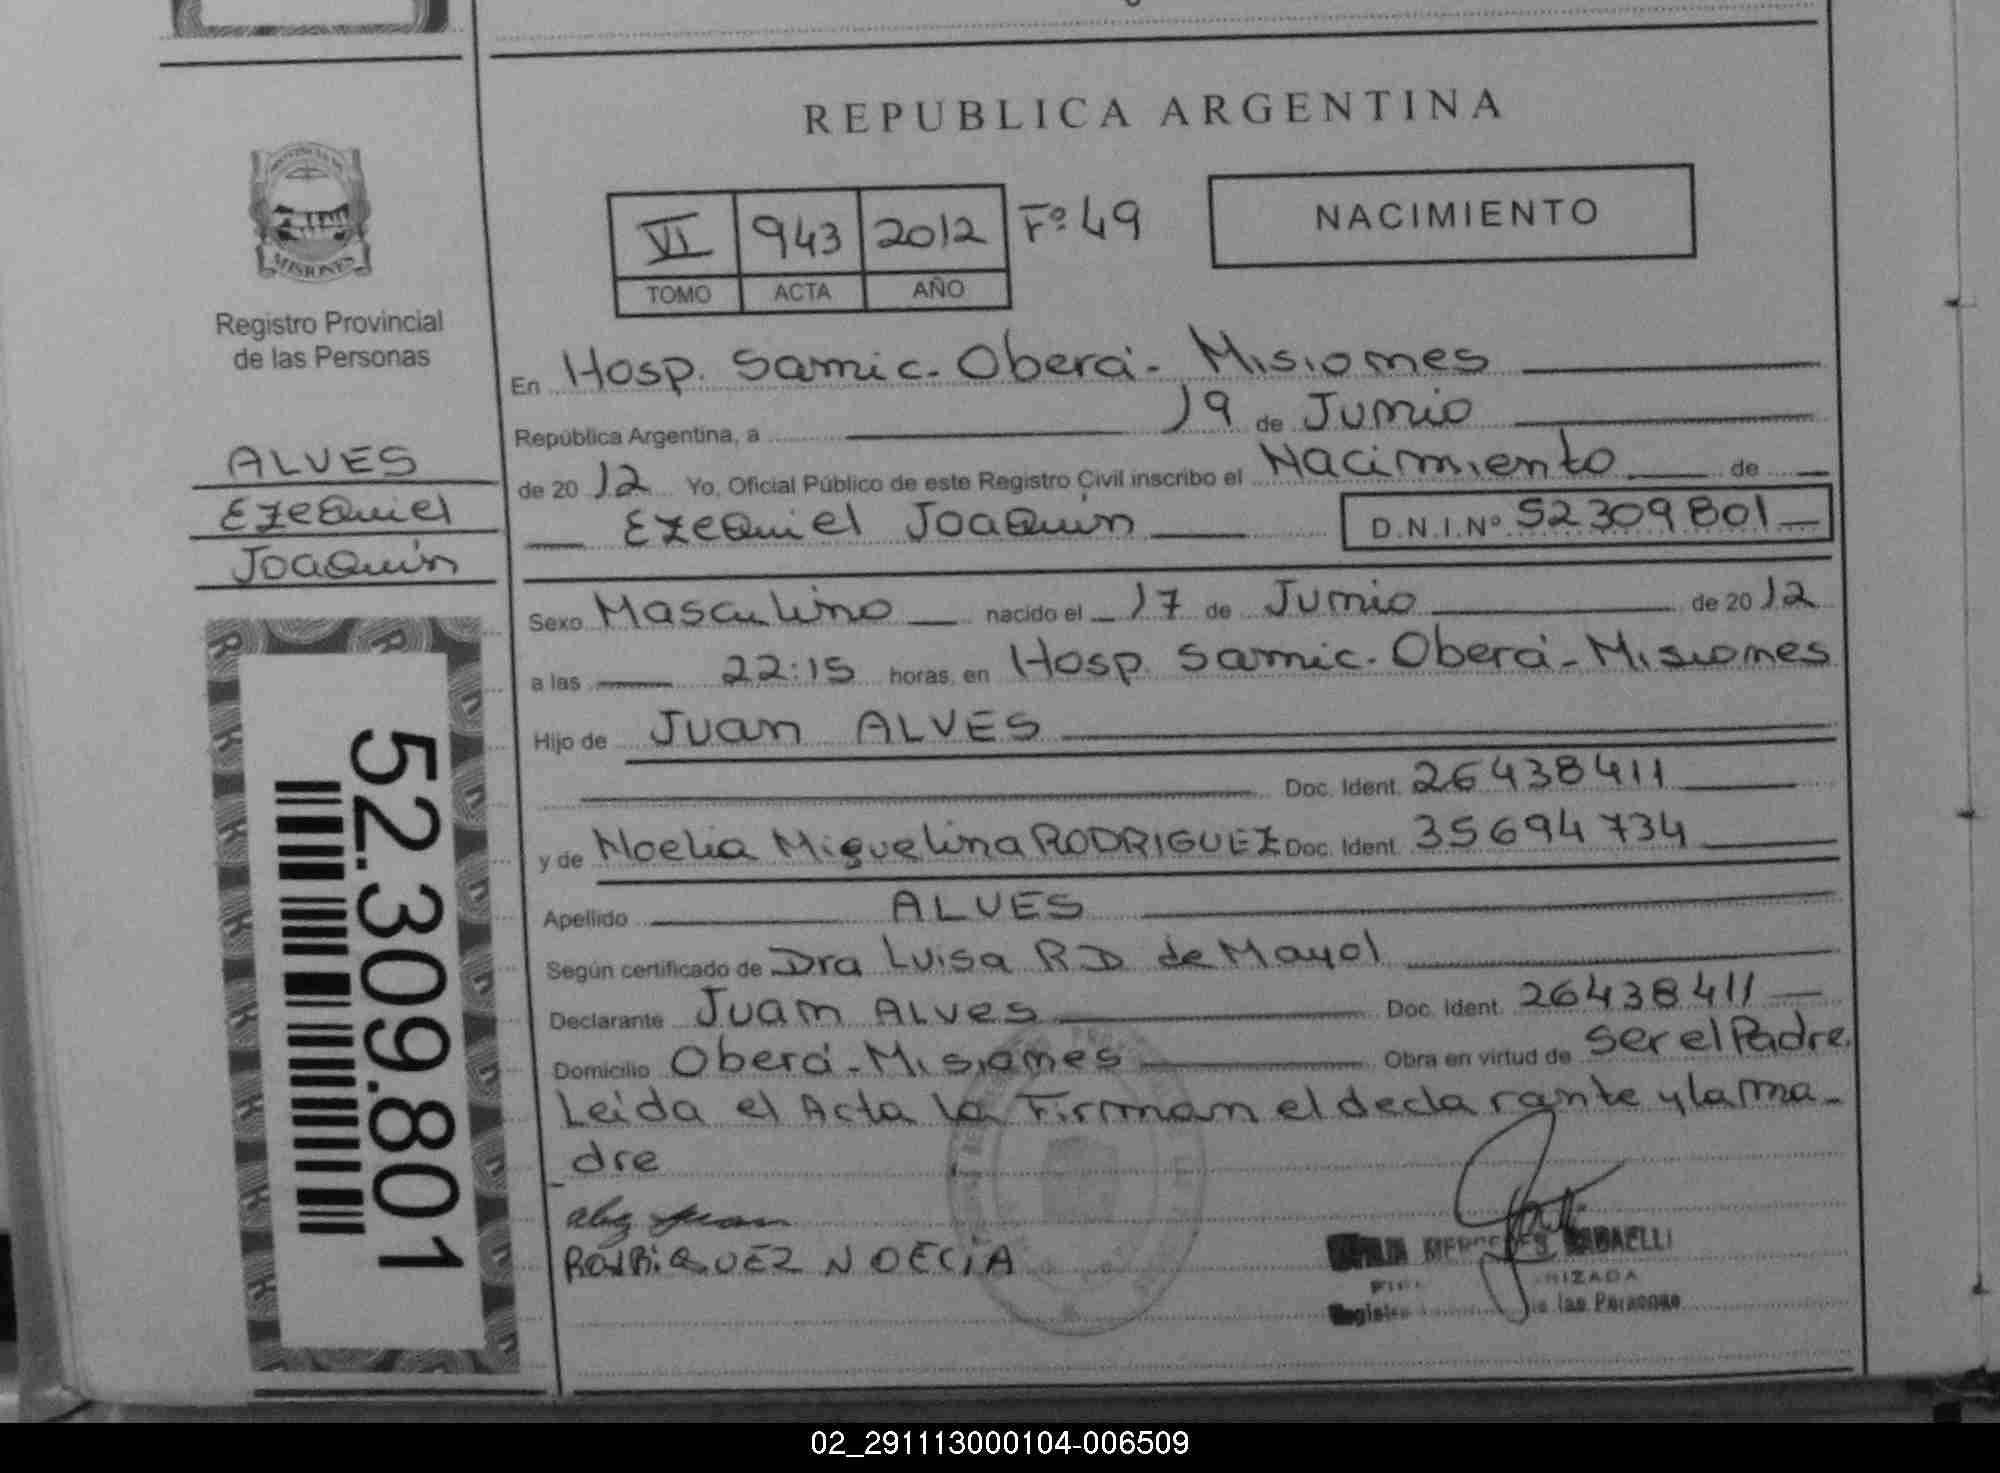 REPUBLICA ARGENTINA
PROVINCIA DE
MISIONES
Registro Provincial
de las Personas
VI 943 2012 Fº 49
TOMO ACTA AÑO
NACIMIENTO
En Hosp. Samic. Oberá - Misiones
República Argentina, a 19 de Junio
de 2012 Yo, Oficial Público de este Registro Civil inscribo el Nacimiento de
Ezequiel Joaquín D.N.I.Nº 52309801
ALVES
Ezequiel
Joaquín
Sexo Masculino nacido el 17 de Junio de 2012
a las 22:15 horas, en Hosp. Samic. Oberá - Misiones
Hijo de Juan ALVES
Doc. Ident. 26438411
y de Noelia Miguelina RODRIGUEZ Doc. Ident. 35694734
Apellido ALVES
Según certificado de Dra Luisa R D de Mayol
Declarante Juan Alves Doc. Ident. 26438411
Domicilio Oberá - Misiones Obra en virtud de ser el Padre.
Leida el Acta la Firman el declarante y la ma-
dre
RODRIGUEZ NOELIA
las Personas
52.309.801
02_291113000104-006509